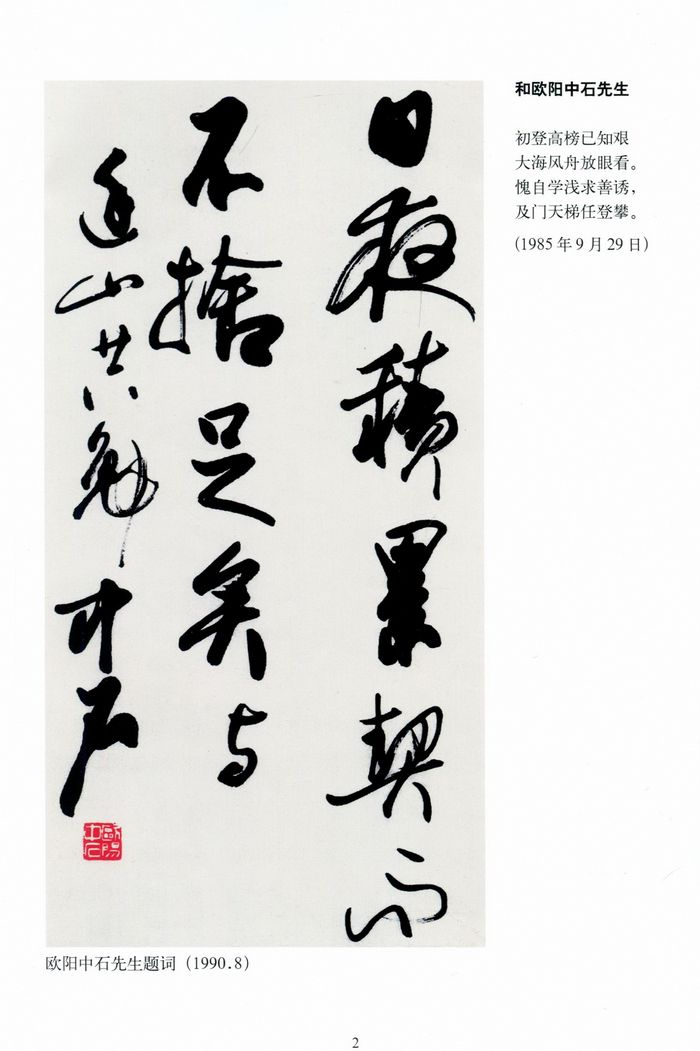 日夜積累契而
不捨足矣与
连山共勉 中石
欧阳中石
欧阳中石先生题词（1990.8）
和欧阳中石先生
初登高榜已知艰
大海风舟放眼看。
愧自学浅求善诱，
及门天梯任登攀。
(1985 年 9 月 29 日)
2